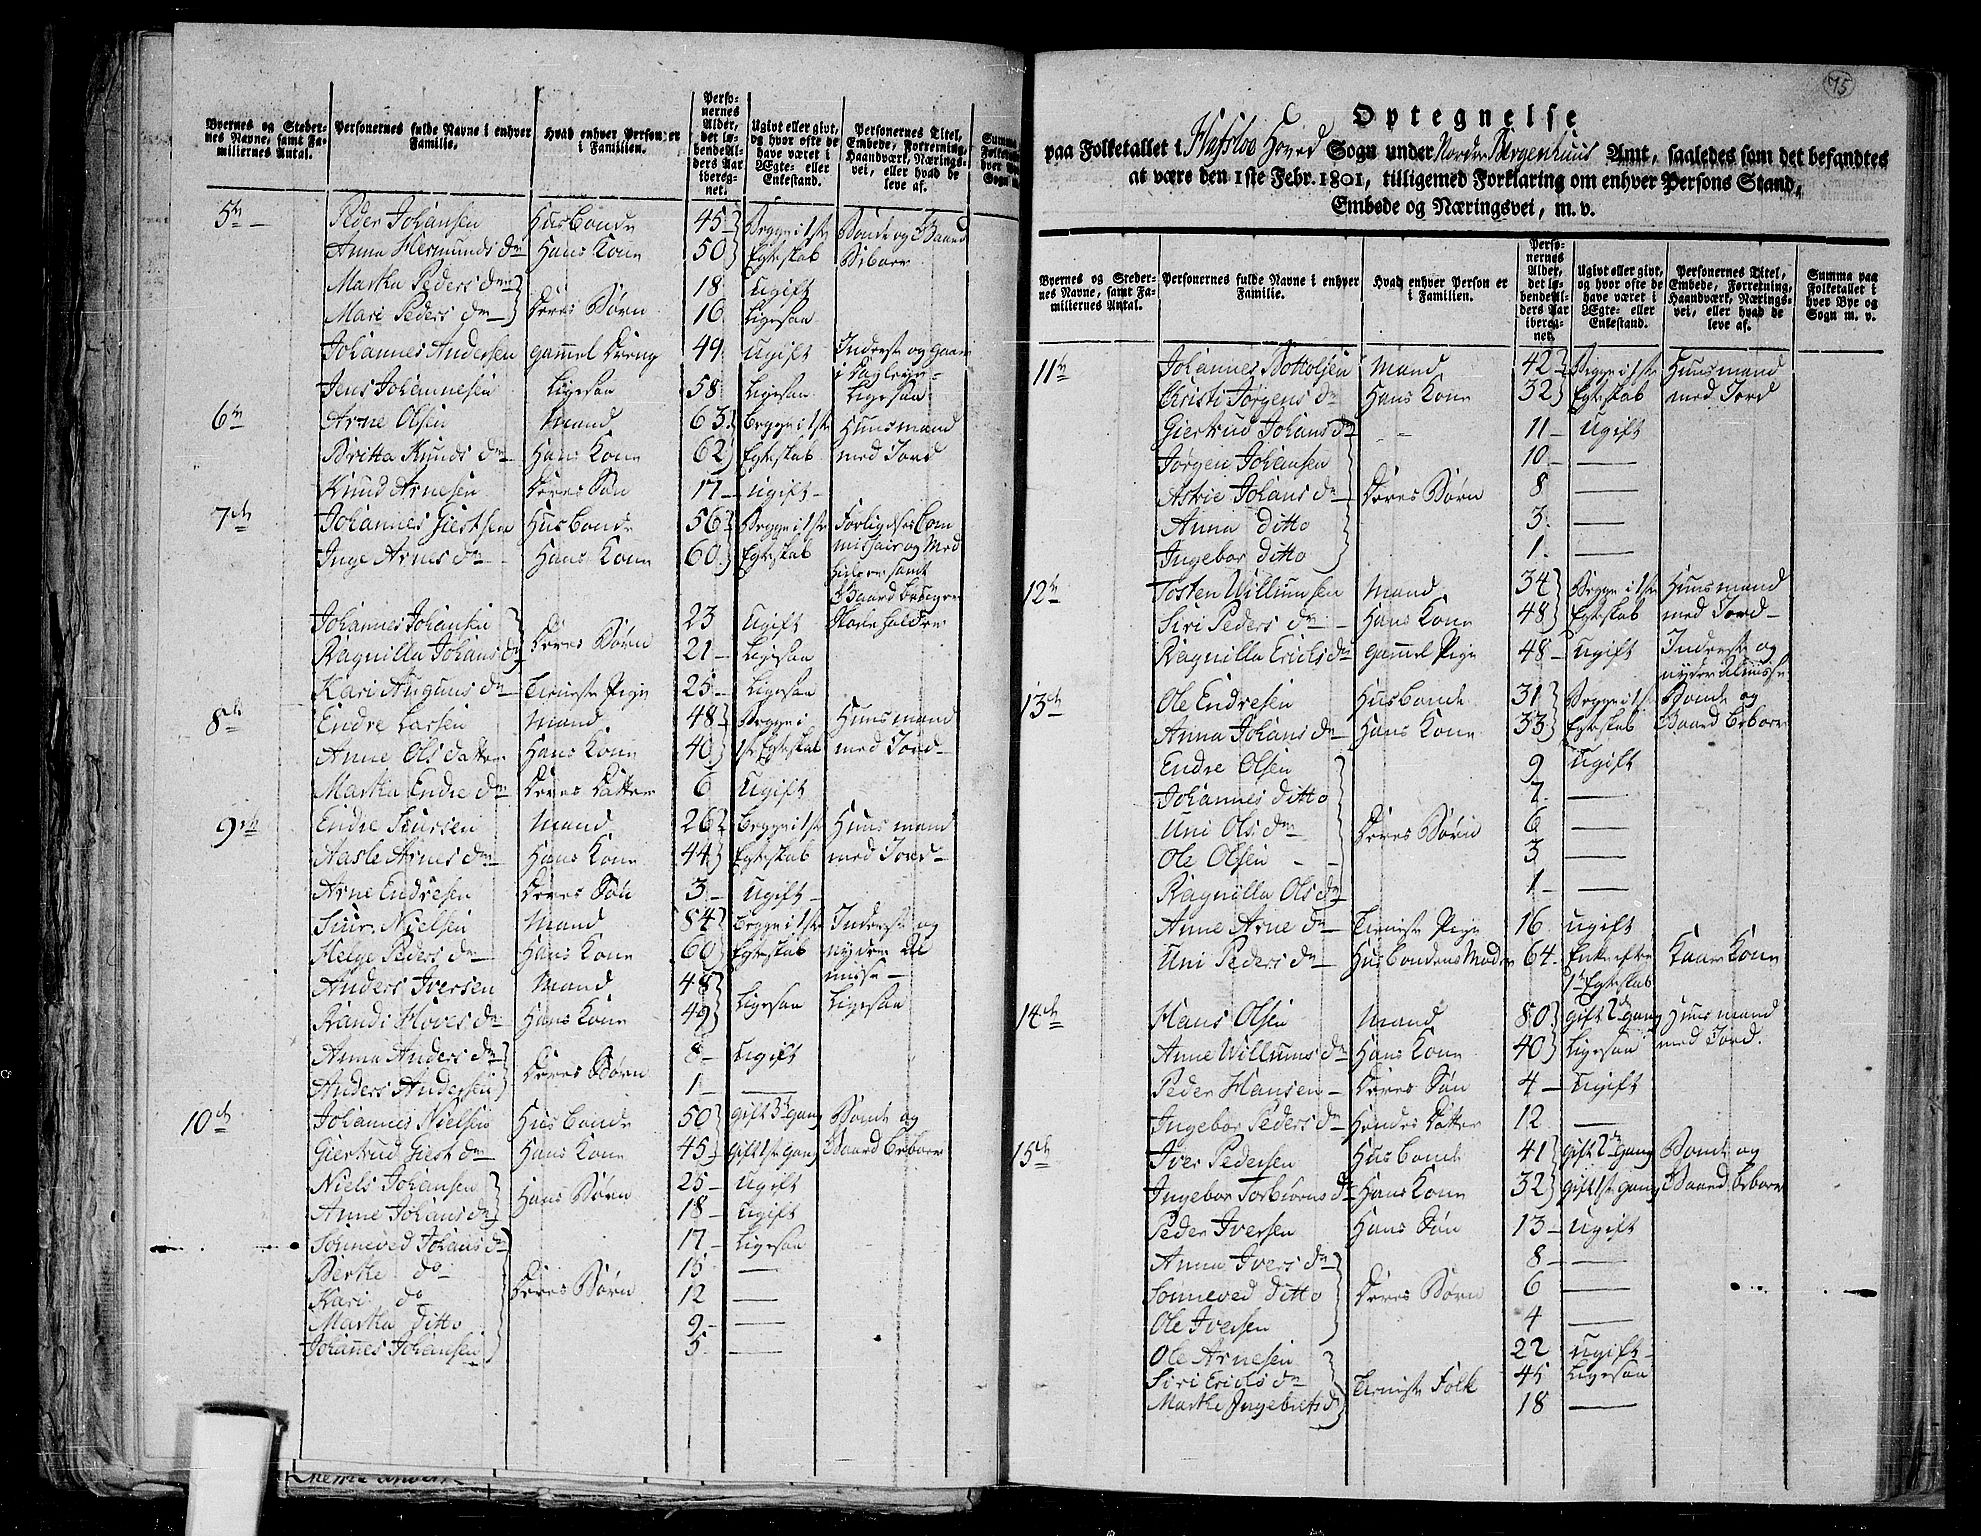 Byernes og Steder-
nes Navne, samt Fa-
miliernes Antal.
Personernes fulde Navne i enhver
Familie.
Hvad enhver Person er
i Familien.
Perso-
nernes
Alder,
det lø-
bende Al-
ders Aar
ibereg-
net.
Ugivt eller givt,
og hvor ofte de
have været i
Ægte- eller
Enkestand.
Personernes Titel,
Embede, Forretning,
Haandværk, Nærings-
vei, eller hvad de
leve af.
5te Peder Johansen HusBonde 45 Begge i 1ste Bonde og Gaard
Anna Hermunds dr Hans Kone 50 Egteskab Beboer
Martha Peders dr 18 Ugift
Mari Peders dr Deres Børn 16 Ligesaa
Johannes Andersen gammel Dreng 49 Ugift Inderste og gaar
i Dagleye
Jens Johannesen Ligesaa 58 Ligesaa Ligesaa
6te Arne Olsen Mand 63 Begge i 1ste Huusmand
Britta Knuds dr Hans Kone 62 Egteskab med Jord
Knud Arnesen Deres Søn 17 Ugift
7de Johannes Giertsen HusBonde 56 Begge i 1ste Forligelses Com
Inge Arnes dr Hans Kone 60 Egteskab missair og Med
hielper samt
Gaard bruger
Johannes Johansen 23 Ugift Skoleholder
Ragnilla Johans dr Deres Børn 21 Ligesaa
Kari Auguns dr Tieniste Pige 25 Ligesaa
8de Endre Larsen Mand 48 Begge i Huusmand
Anne Olsdatter Hans Kone 40 1ste Egteskab med Jord
Martha Endre dr Deres Datter 6 Ugift
9de Endre Siursen Mand 26 Begge i 1ste Huusmand
Aasle Arnes dr Hans Kone 44 Egteskab med Jord
Arne Endresen Deres Søn 3 Ugift
Siur Nielsen Mand 84 Begge i 1ste Inderste og
Helge Peders dr Hans Kone 60 Egteskab nyder Al
misse
Anders Iversen Mand 48
Randi Hoves dr Hans Kone 49 Ligesaa Ligesaa
Anna Anders dr 8 Ugift
Anders Andersen Deres Børn 1 —
10de Johannes Nielsen HusBonde 50 gift 3die gang Bonde og
Giertrud Giert dr Hans Kone 45 gift 1ste gang Gaard Beboer
Niels Johansen 25 Ugift
Anne Johans dr Hans Børn 18 Ugift
Sønneved Johans dr 17 Ligesaa
Berthe do 15 —
Kari do Deres Børn 12 —
Martha Ditto 9 —
Johannes Johansen 5
75
Optegnelse
paa Folketallet i Hafsloe Hoved Sogn under Nordre Bergenhuus Amt, saaledes som det befandtes
at være den 1ste Febr. 1801, tilligemed Forklaring om enhver Persons Stand,
Embede og Næringsvei, m. v.
Byernes og Steder-
nes Navne, samt Fa-
miliernes Antal.
Personernes fulde Navne i enhver
Familie.
Hvad enhver Person er
i Familien.
Perso-
nernes
Alder,
det lø-
bende Al-
ders Aar
ibereg-
net.
Ugivt eller givt,
og hvor ofte de
have været i
Ægte- eller
Enkestand.
Personernes Titel,
Embede, Forretning,
Haandværk, Nærings-
vei, eller hvad de
leve af.
Summa paa
Folketallet i
hver Bye og
Sogn m. v.
11te Johannes Botholfsen Mand 42 Begge i 1ste Huusmand
Christi Jørgens dr Hans Kone 32 Egteskab med Jord
Giertrud Johans dr 11 Ugift
Jørgen Johansen 10 —
Astrie Johans dr Deres Børn 8 —
Anna Ditto 3 —
Ingebor Ditto 1 —
12te Tosten Willumsen Mand 34 Begge i 1ste Huusmand
Siri Peders dr Hans Kone 48 Egteskab med Jord
Ragnilla Erichs dr gammel Pige 48 Ugift Inderste og
nyder Almisse
13de Ole Endresen HusBonde 31 Begge i 1ste Bonde og
Anna Johans dr Hans Kone 33 Egteskab Gaard Beboer
Endre Olsen 9 Ugift
Johannes Ditto 7 —
Uni Ols dr Deres Børn 6 —
Ole Olsen 3 —
Ragnilla Ols dr 1 —
Anne Arne dr Tieniste Pige 16 Ugift
Uni Peders dr HusBondens Moder 64 Enke efter Kaar Kone
1ste Egteskab
14de Hans Olsen Mand 80 gift 2de gang Huusmand
Anne Willums dr Hans Kone 40 Ligesaa med Jord.
Peder Hansen Deres Søn 4 Ugift
Ingebor Peders dr Hendes Datter 12 —
15de Iver Pedersen HusBonde 41 gift 2de gang Bonde og
Ingebor Torbiørns dr Hans Kone 32 gift 1ste gang Gaard Beboer
Peder Iversen Hans Søn 13 Ugift
Anna Ivers dr 8 —
Sønneved Ditto Deres Børn 6 —
Ole Iversen 4 —
Ole Arnesen 22 Ugift
Siri Erichs dr Tieniste Folk 45 Ligesaa
Marthe Ingebrets d 18 —